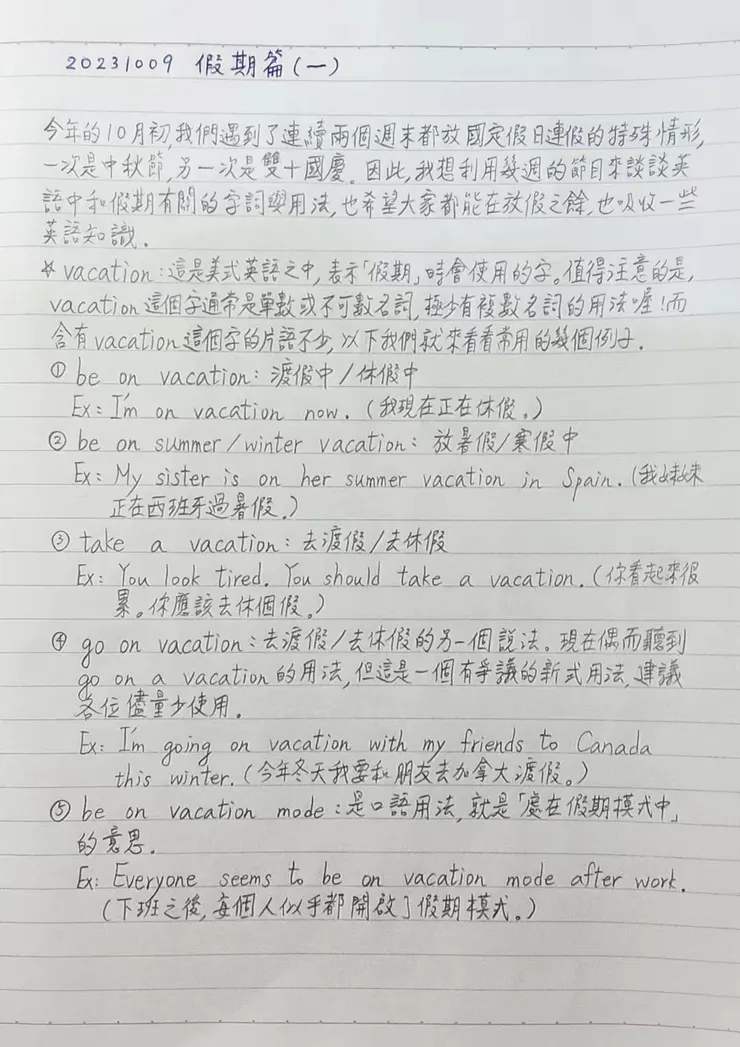 20231009 假期篇(一)
今年的10月初,我們遇到了連續兩個週末都放國定假日連假的特殊情形,
一次是中秋節,另一次是雙十國慶。因此,我想利用幾週的節目來談談英
語中和假期有關的字詞與用法,也希望大家都能在放假之餘,也吸收一些
英語知識.
☆ vacation:這是美式英語之中,表示「假期」時會使用的字。值得注意的是,
vacation這個字通常是單數或不可數名詞,極少有複數名詞的用法喔!而
含有vacation這個字的片語不少,以下我們就來看看常用的幾個例子.
① be on vacation:渡假中/休假中
Ex: I'm on vacation now.(我現在正在休假。)
② be on summer/winter vacation: 放暑假/寒假中
Ex: My sister is on her summer vacation in Spain.(我妹妹
正在西班牙過暑假.)
③ take a vacation:去渡假/去休假
Ex: You look tired. You should take a vacation.(你看起來很
累。你應該去休個假。)
④ go on vacation:去渡假/去休假的另一個說法。現在偶而聽到
go on a vacation的用法,但這是一個有爭議的新式用法,建議
各位儘量少使用.
Ex: I'm going on vacation with my friends to Canada
this winter.(今年冬天我要和朋友去加拿大渡假。)
⑤ be on vacation mode:是口語用法,就是「處在假期模式中」
的意思.
Ex: Everyone seems to be on vacation mode after work.
(下班之後,每個人似乎都開啟了假期模式。)